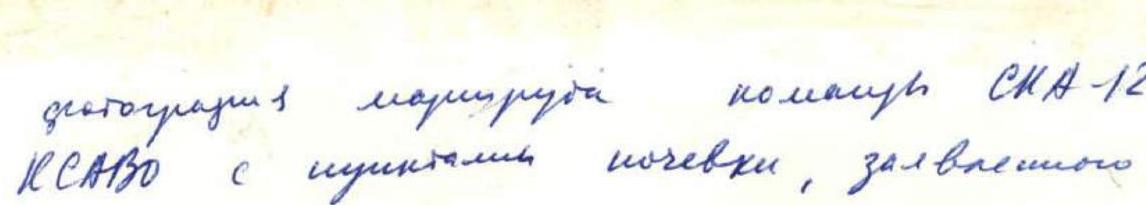 фотография маршрута команды СКА-12
КСАВО с пунктами ночевки, заявленного